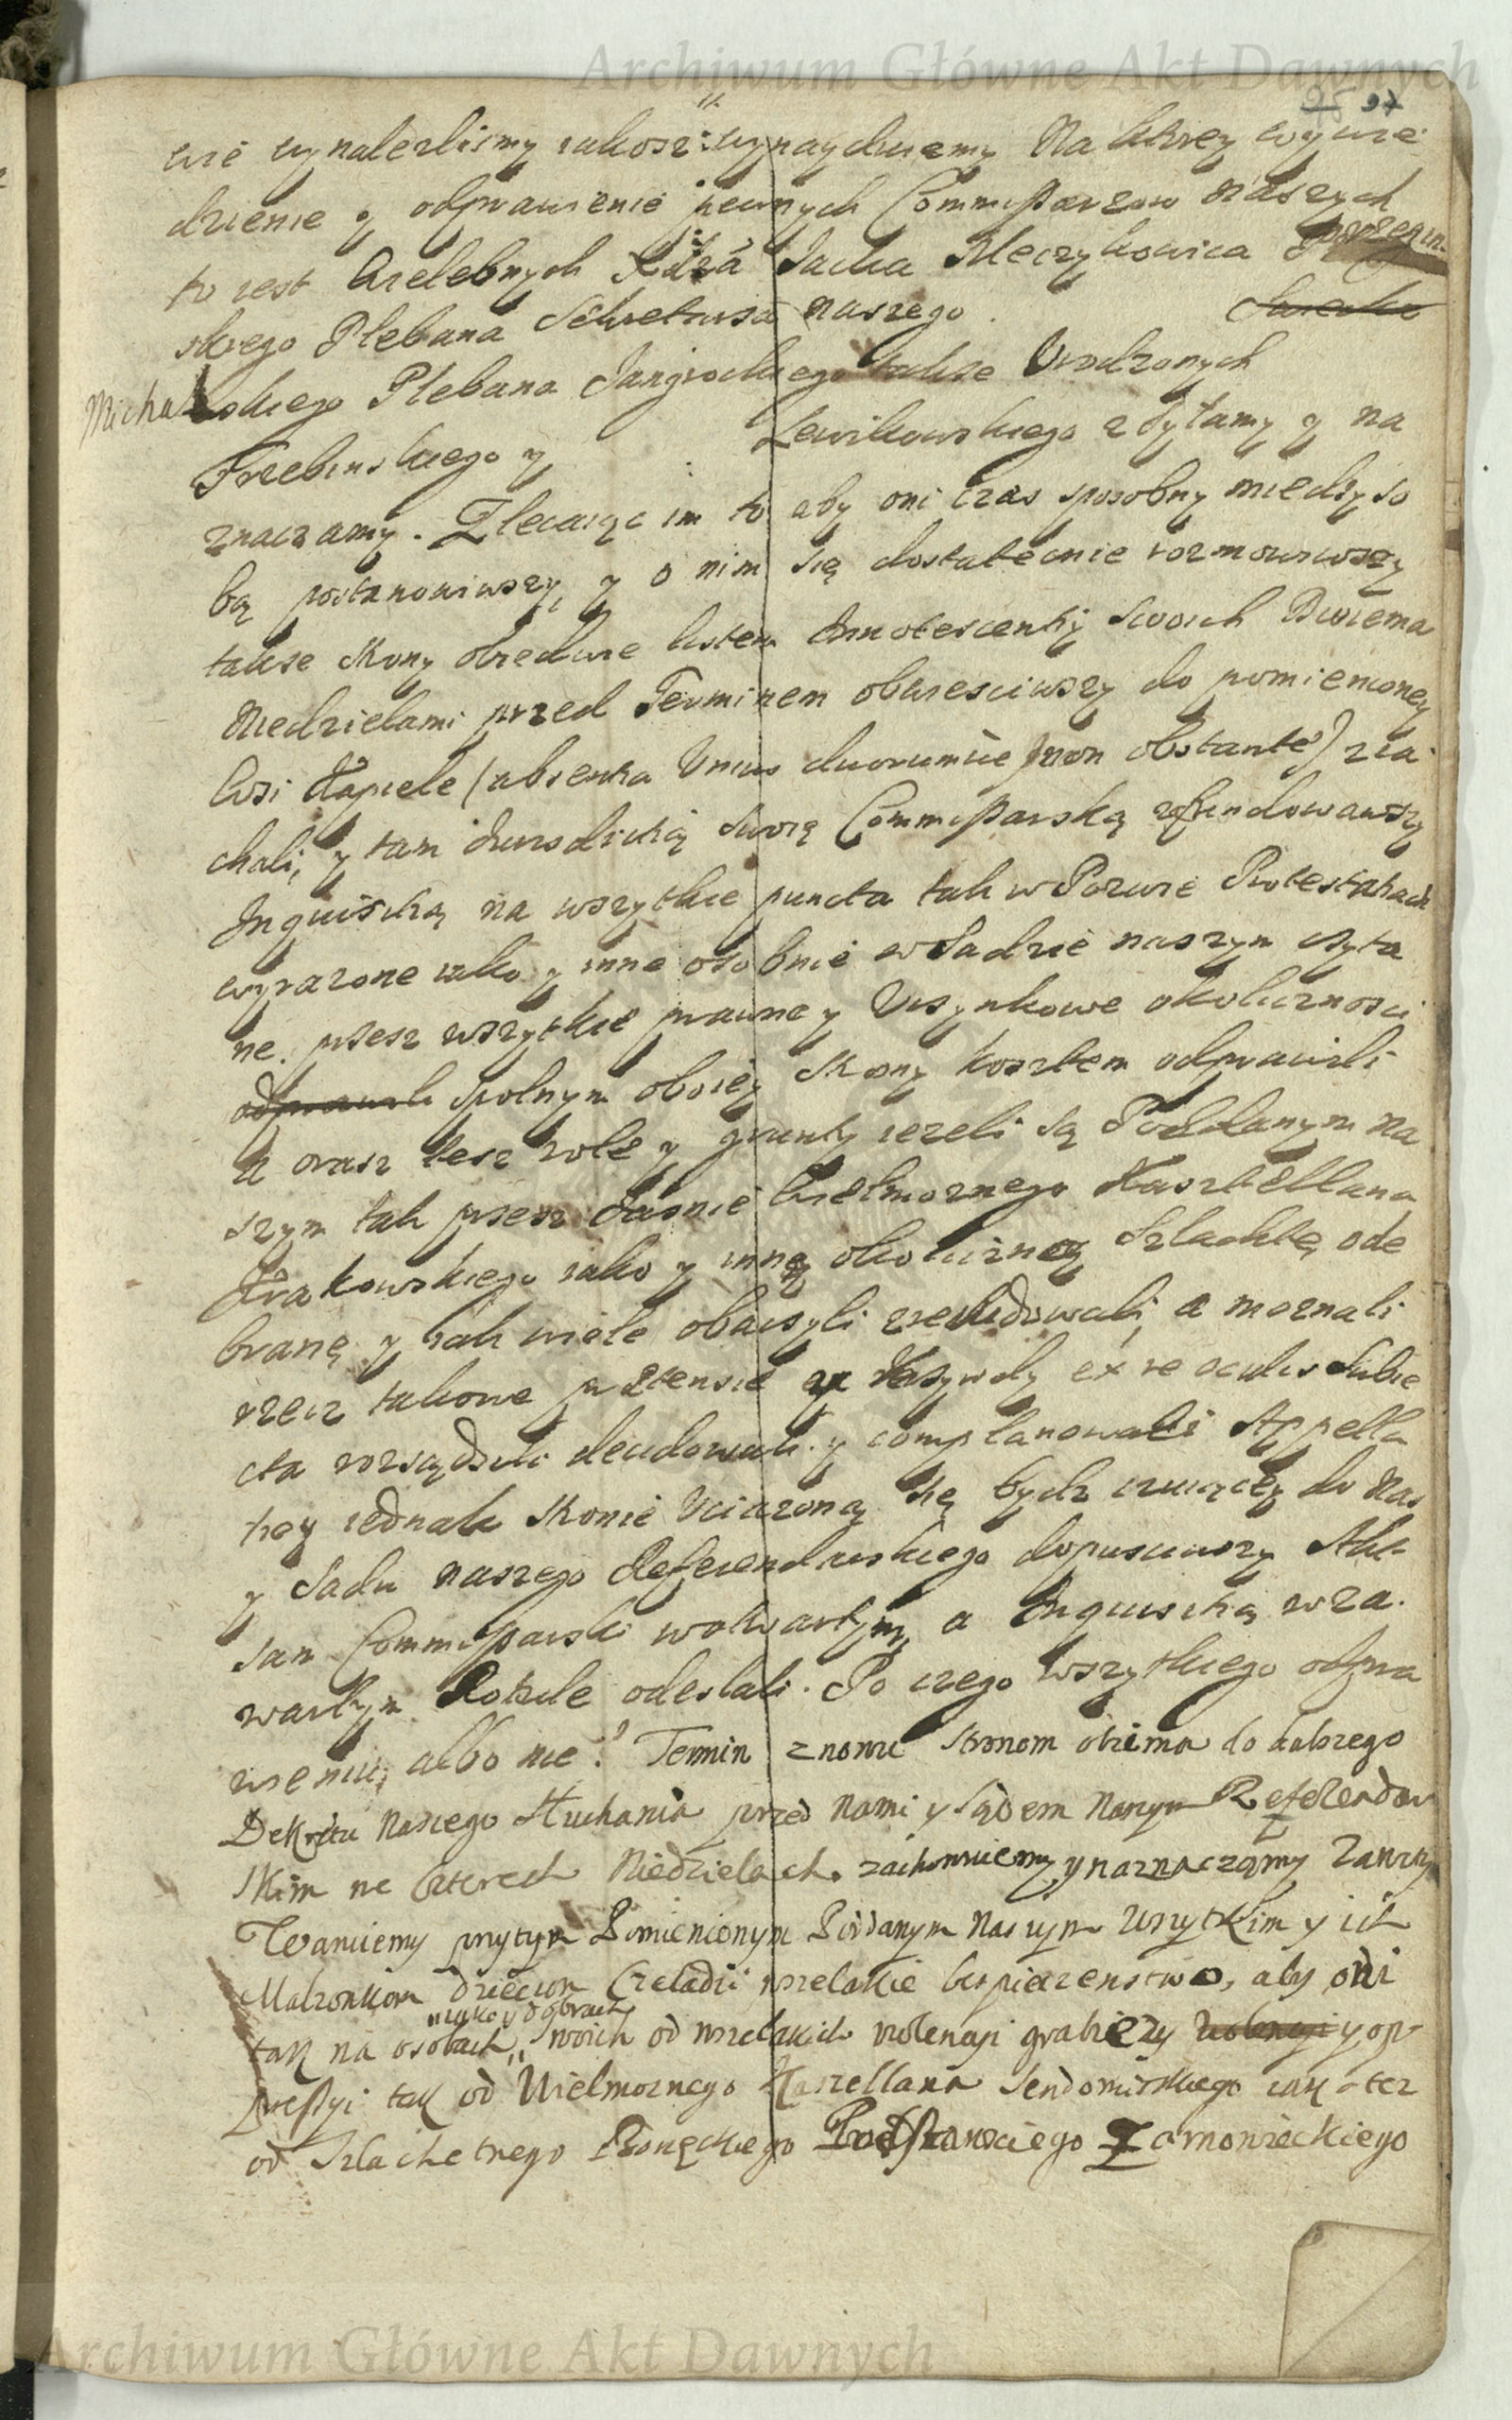 Archiwum Główne Akt Dawnych
97
wie wynalezlismy jakosz wynayduiemy Na ktorey wywie
dzienie y odprawienie pewnych Commissarzow naszych
to iest Wielebnych Xdza Jacka Kleczykowica
skiego Plebana Sekretarza naszego
Michalskiego Plebana także Urodzonych
Trzebinskiego y Lewikowskiego zsyłamy y na
znaczamy. Zlecaiąc im to aby oni czas sposobny miedzy so
bą postanowiwszy, y o nim się dostatecznie rozmowiwszy
takze strony obiedwie listem Innotescentij swoich Dwiema
Niedzielami przed Terminem obwiesciwszy do pomienioney
Wsi Kapiele (absentia Unius duorumue non obstante) zia
chali, y tam Iurisdictią swoią Commissarską zfundowawszy
Inquisitią na wszytkie puncta tak w Pozwie Protestatiach
wyrazone iako y inne osobnie w Sadzie naszym czyta
ne. przesz wszytkie prawne y Uczynkowe okolicznosci
odprawili spolnym oboiey strony kosztem odprawili
a oraz tesz role y grunty iezeli są Poddanym na
szym tak przesz Jasnie Wielmoznego Kasztellana
Krakowskiego iako y inną okoliczną Szlachtę ode
brane y iak wiele obaczyli zrewidowali, a meznali
rzecz takowe praetensie y Krzywdy ex re oculis subie
cta rozsądzili decidowali y complanowali Appella
tiey iednak stronie Uciązoną się bydz czuiącey do Nas
y Sadu naszego Referendarskiego dopusciwszy Akt
sam Commissarski w otwartym, a Inquisitią w za
wartym Rotule odeslali. Po czego wszytkiego odpra
wieniu, albo nie? Termin znowu stronom obiema do dalszego
Dekretu Naszego słuchania przed Nami y Sądem Naszym Referendar
skim we czterech Niedzielach zachowuiemy y naznaczamy Zawaru
iemy przytym Pomienionym Poddanym Naszym Wszytkim y ich
Małzonkom Dzieciom Czeladzi wszelakie bespieczenstwo, aby oni
iako y dobrach
tak na osobach swoich od wszelakich violencyi grabiezy violencyi y op
pressyi tak od Wielmoznego Kasztellana Sendomirskiego iak tez
od Szlachetnego Podstarosciego Zarnowieckiego
Archiwum Główne Akt Dawnych